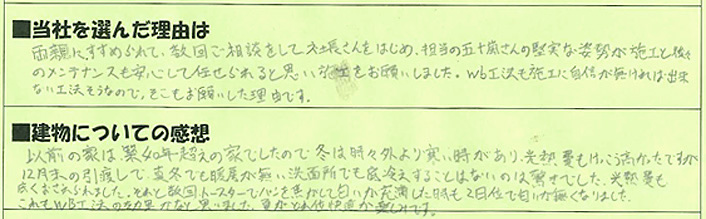 ■当社を選んだ理由は
両親にすすめられて、数回ご相談をして社長さんをはじめ、担当の五十嵐さんの堅実な姿勢が施工と後々
のメンテナンスも安心して任せられると思い をお願いしました。wb工法も施工に自信が無ければ出来
ない工法そうなので、そこもお願いした理由です。
■建物についての感想
以前の家は、築40年超えの家でしたので冬は時々外より寒い時があり、光熱費もけっこう高かったですが
12月末の引渡しで、真冬でも暖房が無い洗面所でも底冷えすることはないのは驚きでした。光熱費も
安くおさえられました。それと数回トースターでパンを焦がして匂いが充満した時も2日位で匂いが無くなりました。
これもWB工法の効果かなと思いました。夏がどれ位快適か楽しみです。